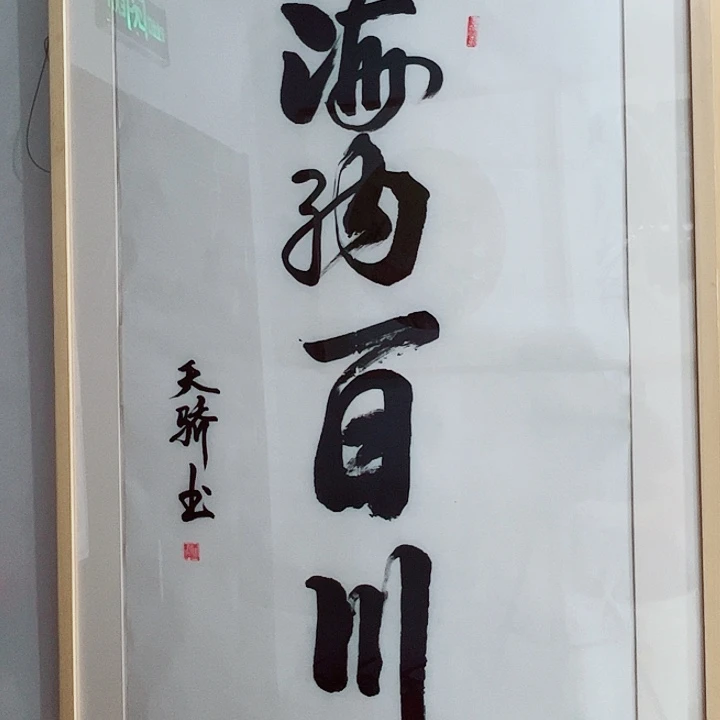 海纳百川
天骄书